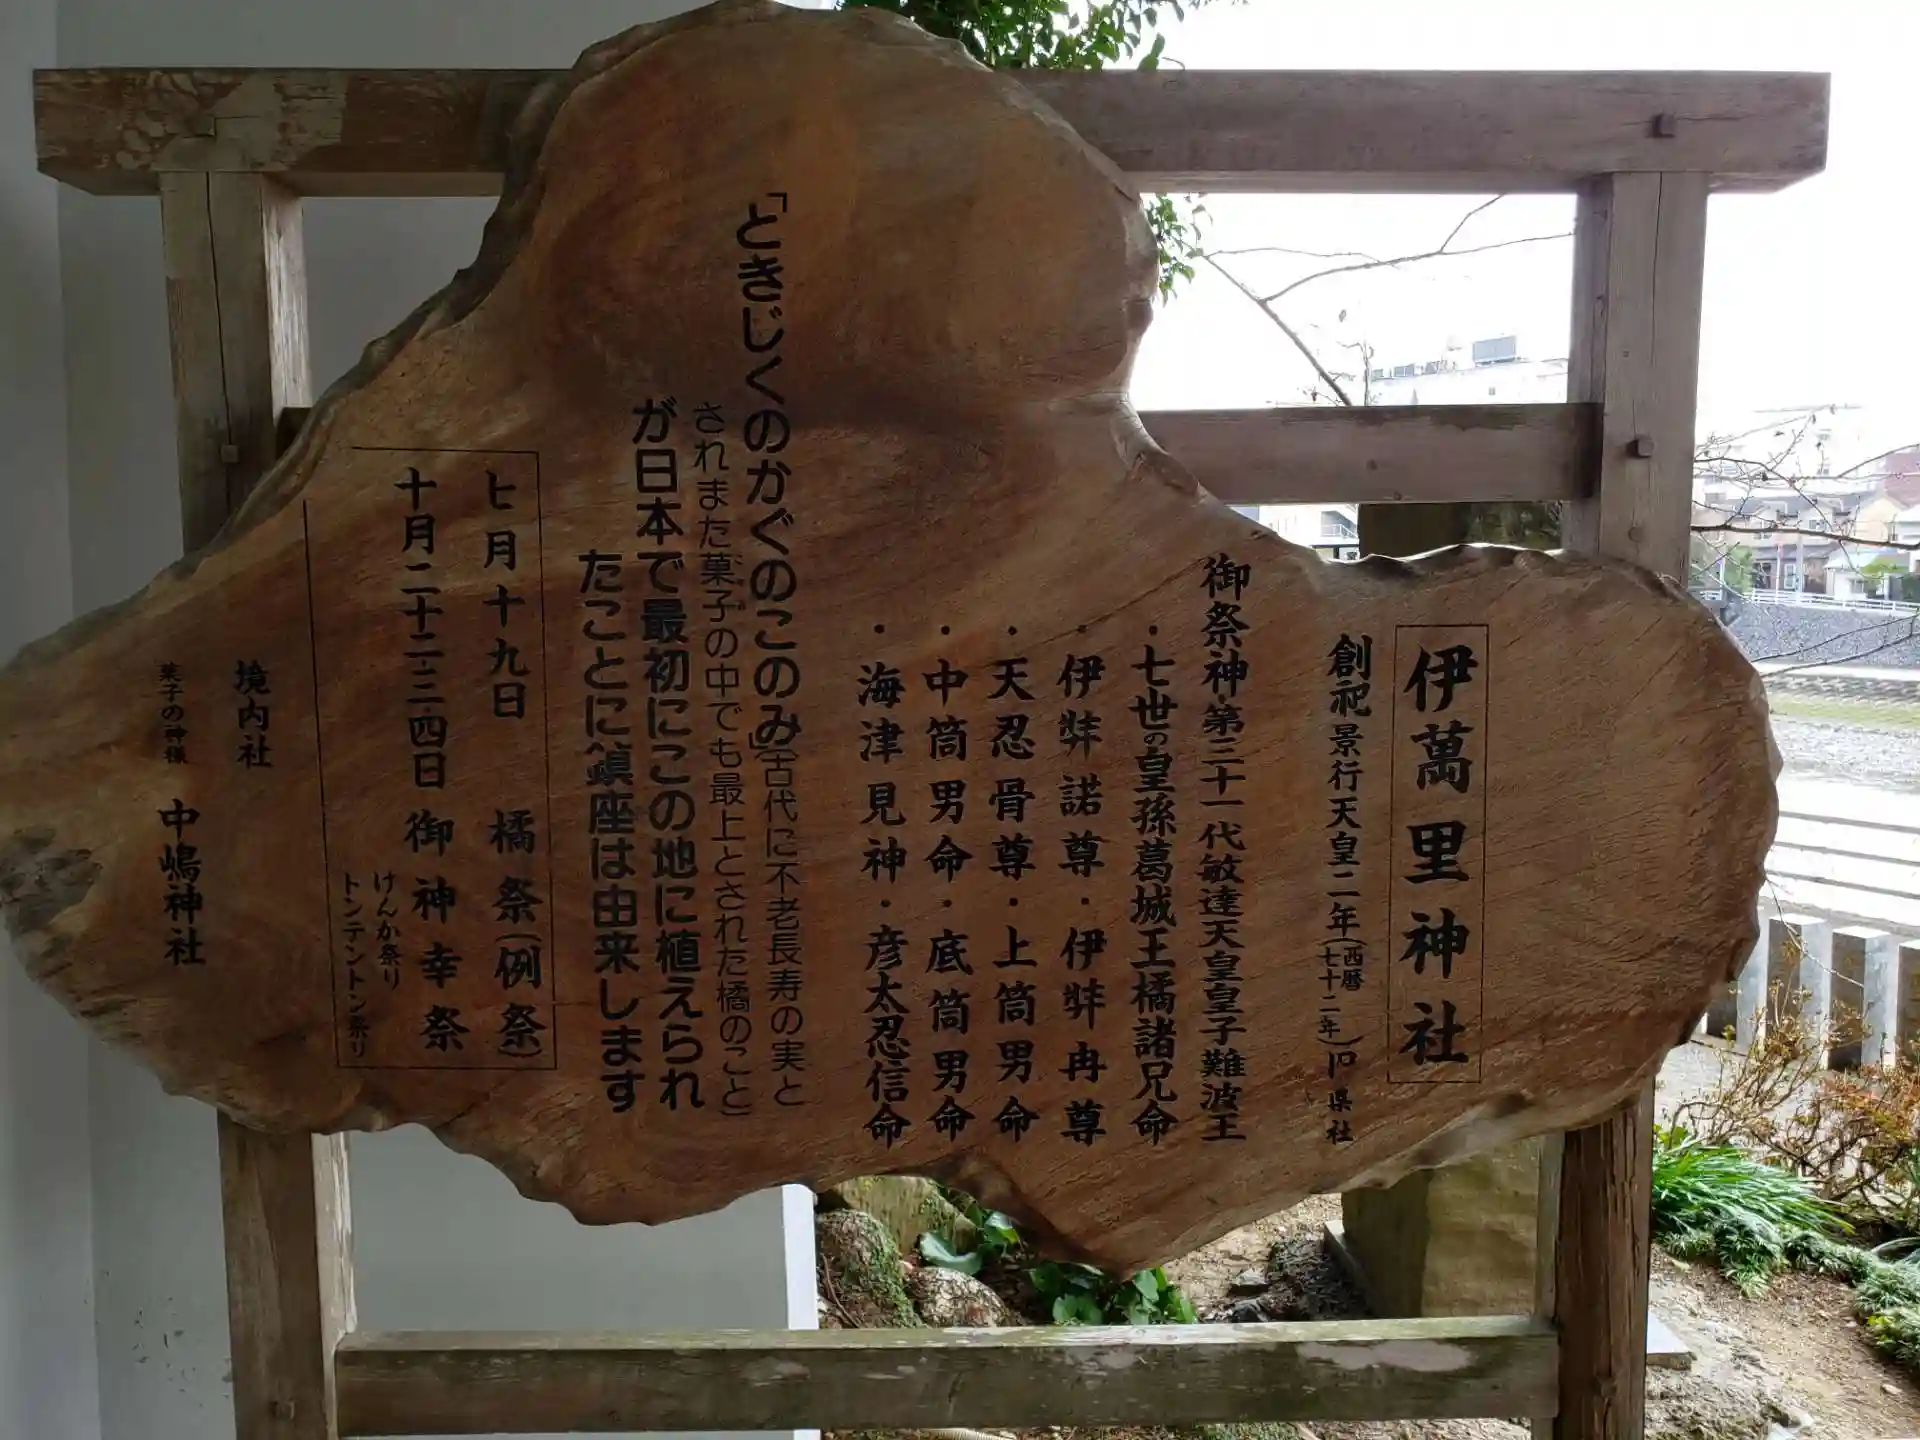 伊萬里神社
創祀 景行天皇二年(西暦七十二年)旧県社
御祭神第三十一代敏達天皇皇子難波王
・七世の皇孫葛城王橘諸兄命
・伊弉諾尊・伊弉冉尊
・天忍骨尊・上筒男命
・中筒男命・底筒男命
・海津見神・彦太忍信命
「ときじくのかぐのこのみ」(古代に不老長寿の実と
されまた菓子の中でも最上とされた橘のこと)
が日本で最初にこの地に植えられ
たことに鎮座は由来します
七月十九日 橘祭(例祭)
十月二十二・三・四日 御神幸祭
けんか祭り
トンテントン祭り
境内社
菓子の神様 中嶋神社